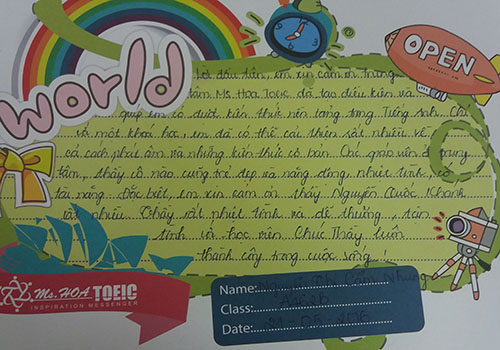 world
OPEN
Lời đầu tiên, em xin cảm ơn trung
tâm Ms. Hoa Toeic đã tạo điều kiện và
giúp em có được kiến thức nền tảng trong Tiếng Anh. Chỉ
và một khoá học, em đã có thể cải thiện rất nhiều về
cả cách phát âm và những kiến thức cơ bản. Chúc giáo viên trung
tâm, thầy cô nào cũng trẻ đẹp và năng động, nhiệt tình, có
tài năng. Đặc biệt, em xin cảm ơn thầy Nguyễn Quốc Khánh
rất nhiều. Thầy rất nhiệt tình và dễ thương, tận
tình với học viên. Chúc Thầy luôn
thành công trong cuộc sống!
Ms. HOA TOEIC
INSPIRATION MESSENGER
Name: Nhung
Class:
Date: